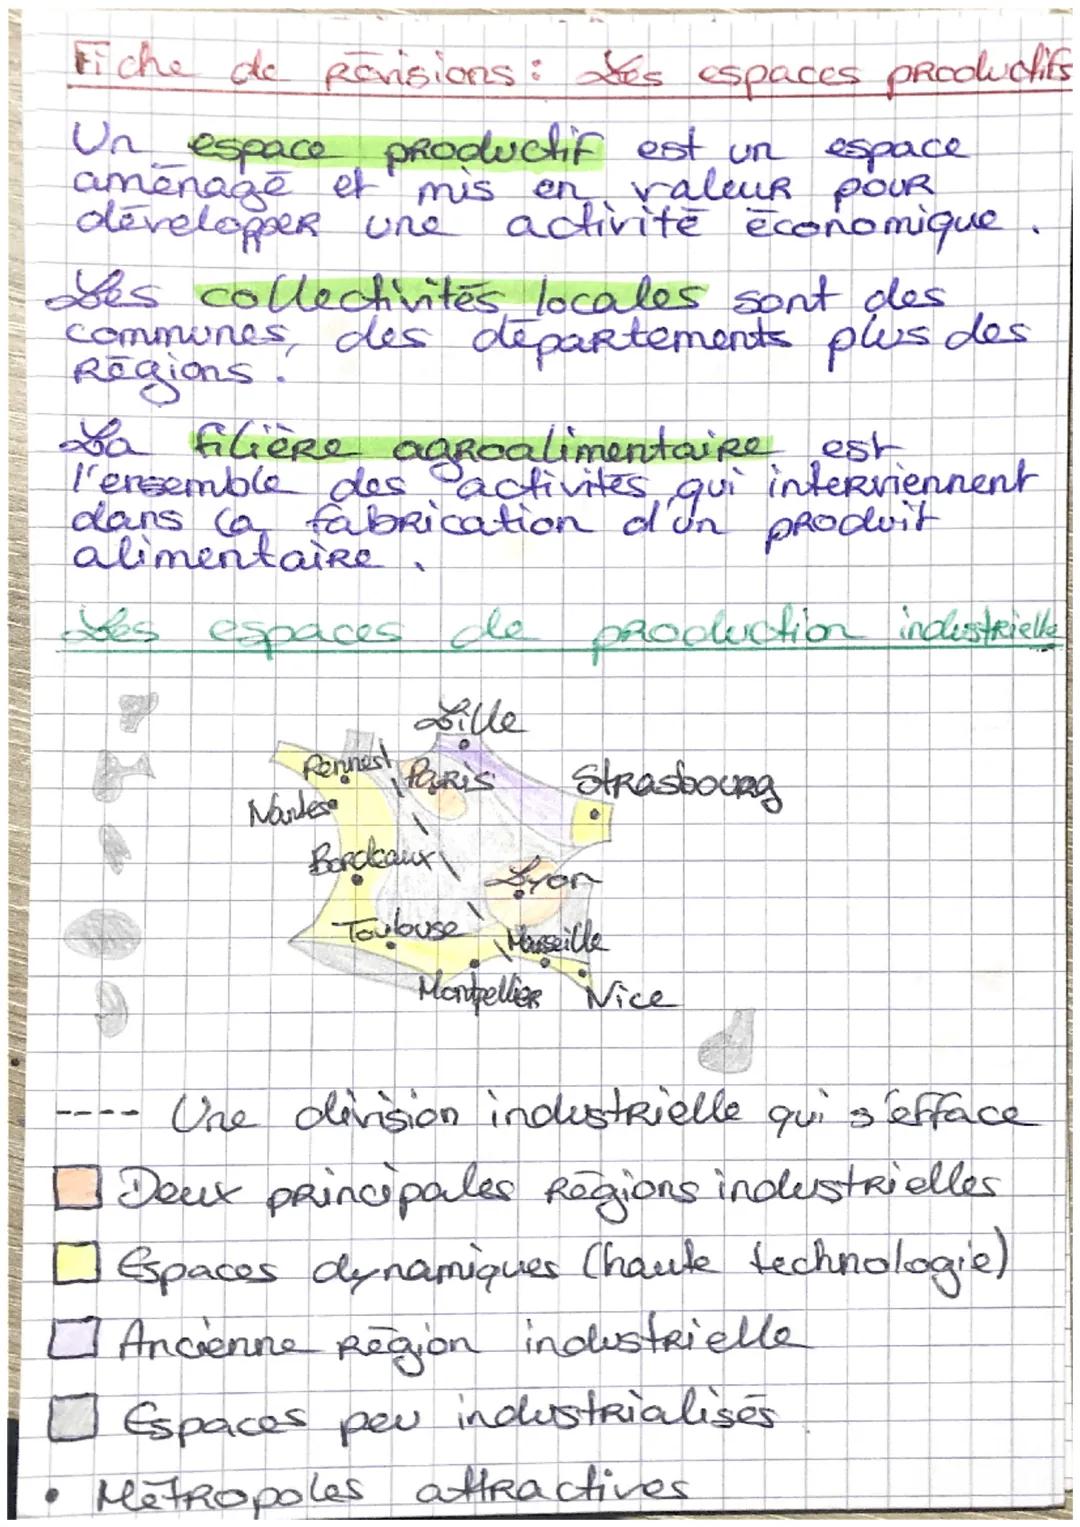 Fiche de révisions : Les espaces productifs
Un espace productif est un espace
aménagé et mis en valeur pour
développer une activité économique.
Les collectivités locales sont des
communes, des départements plus des
régions.
La filière agroalimentaire est
l'ensemble des activités qui interviennent
dans la fabrication d'un produit
alimentaire.
Les espaces de production industrielle
Lille
Rennes
Paris
Strasbourg
Nantes
Bordeaux
Lyon
Toulouse
Marseille
Montpellier
Nice
---- Une division industrielle qui s'efface
Deux principales régions industrielles
Espaces dynamiques (haute technologie)
Ancienne région industrielle
Espaces peu industrialisés
• Métropoles attractives